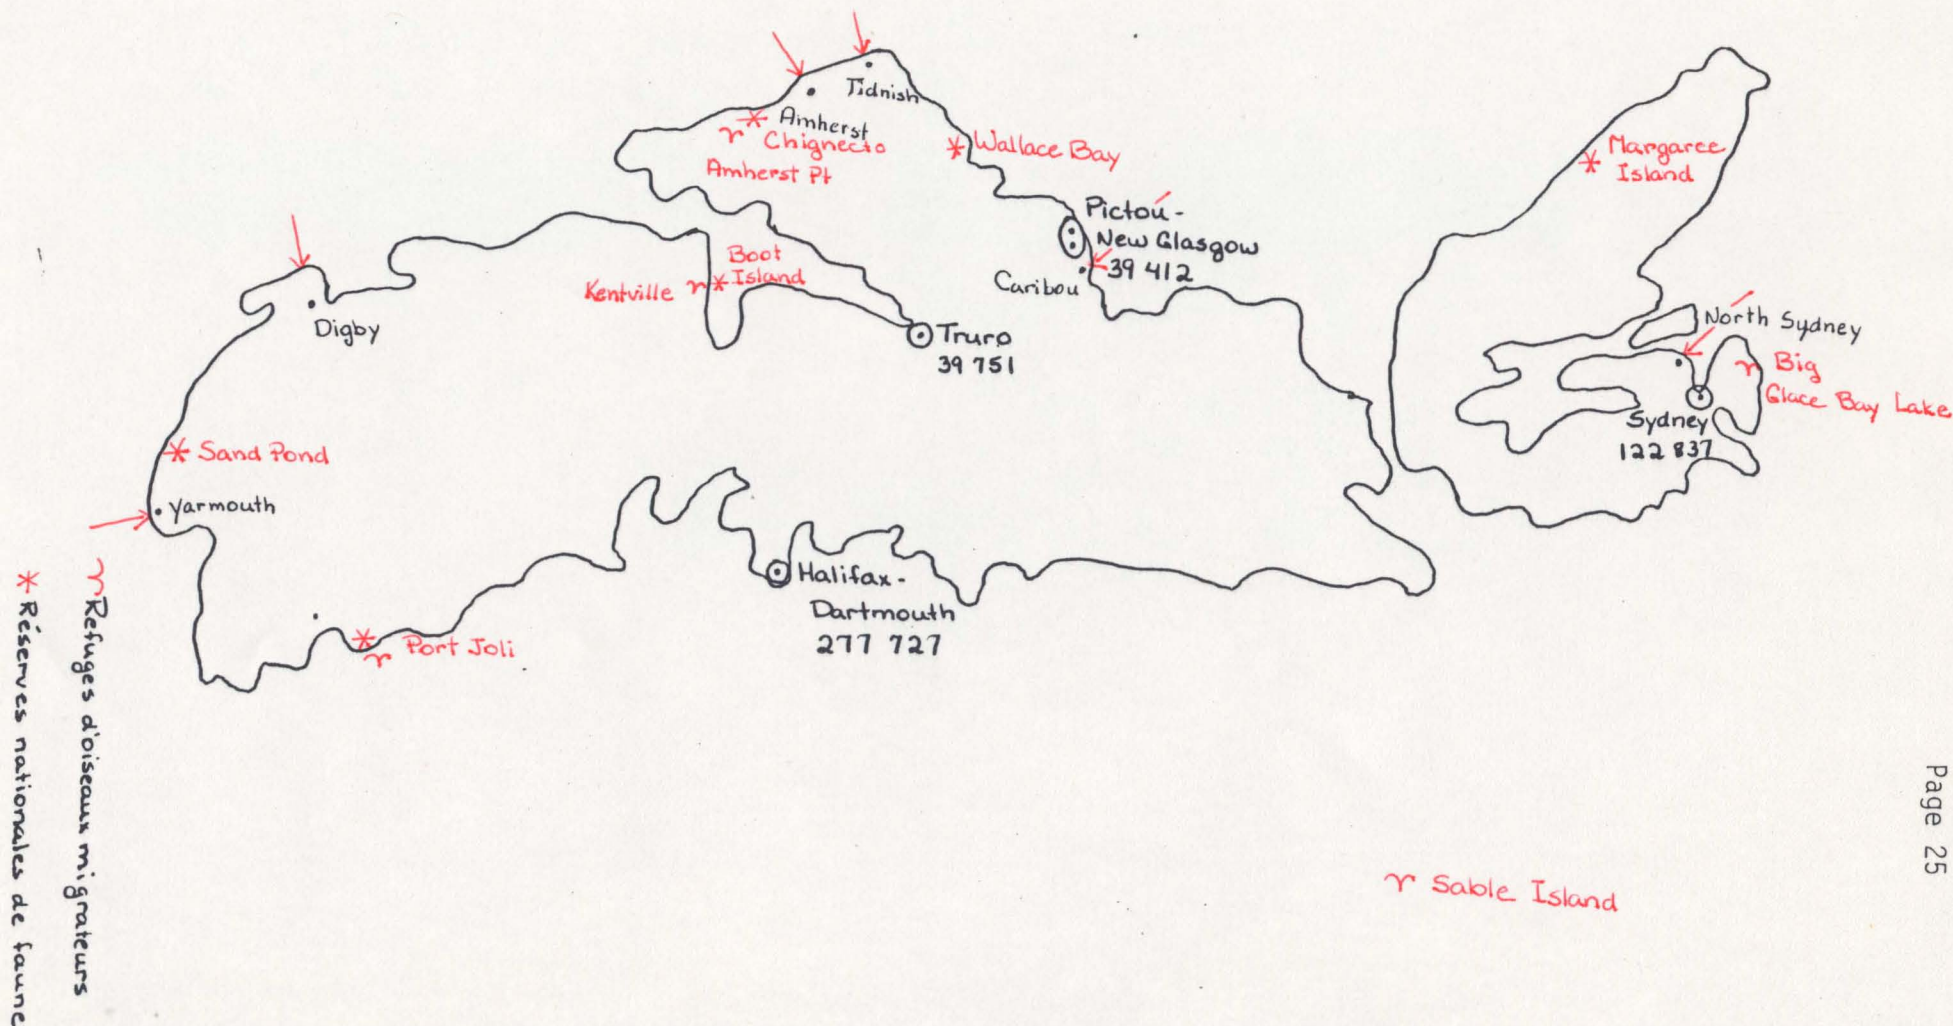 Tidnish
Amherst
Chignecto
Amherst Pt
* Wallace Bay
Margaree
Island
Pictou-
New Glasgow
39 412
Caribou
Boot
Island
Kentville
Digby
Truro
39 751
North Sydney
Big
Glace Bay Lake
Sydney
122 837
* Sand Pond
Yarmouth
Halifax-
Dartmouth
277 727
Port Joli
Sable Island
Refuges d'oiseaux migrateurs
* Réserves nationales de faune
Page 25